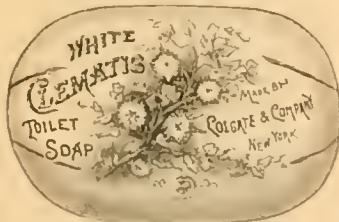 WHITE
CLEMATIS
TOILET
SOAP
MADE BY
COLGATE & COMPANY
NEW YORK